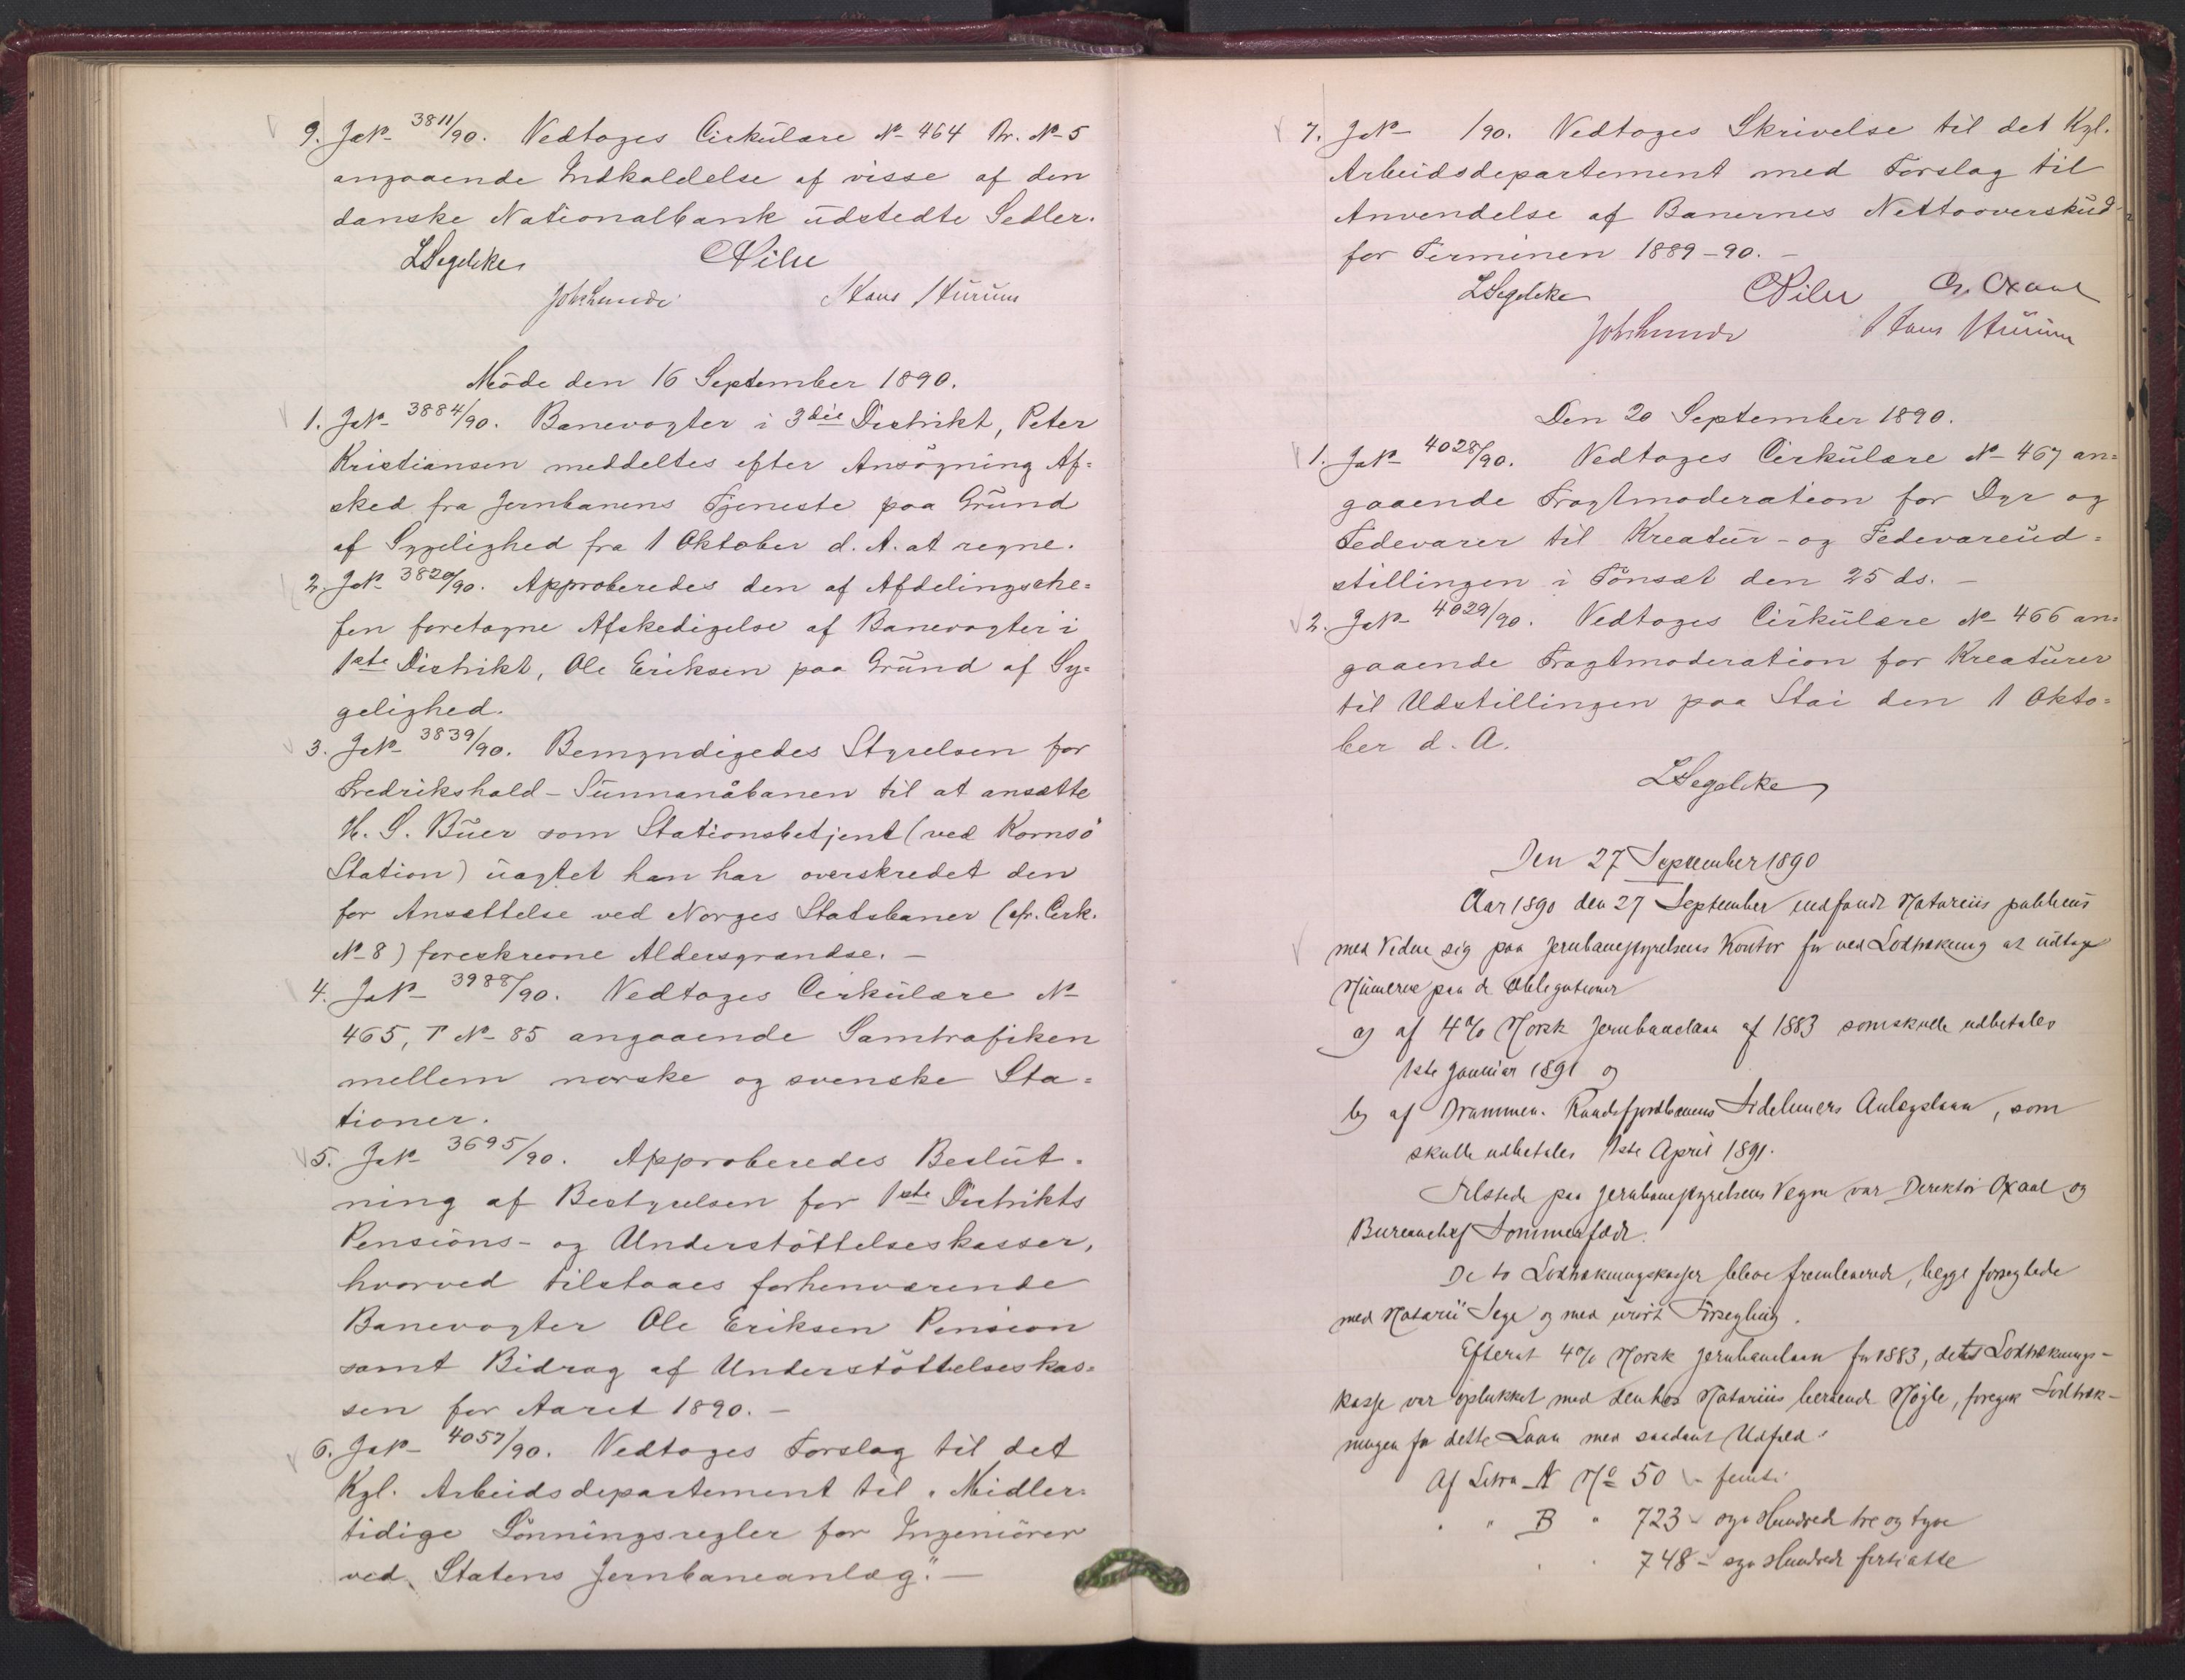 9. J.№ 3811/90. Vedtoges Cirkulære № 464 Tr. № 5
angaaende Indkaldelse af visse af den
danske Nationalbank udstedte Sedler.
LSegelcke CPihl
Joh Lunde Hans Hurum
Möde den 16 September 1890.
1. J.№ 3884/90. Banevogter i 3die Distrikt, Peter
Kristiansen meddeltes efter Ansögning Af=
sked fra Jernbanens Tjeneste paa Grund
af Sygelighed fra 1 Oktober d. A. at regne.
2. J.№ 3820/90. Approberedes den af Afdelingsche=
fen foretagne Afskedigelse af Banevogter i
1ste Distrikt, Ole Eriksen paa Grund af Sy=
gelighed.
3. J.№ 3839/90. Bemyndigedes Styrelsen for
Fredrikshald-Sunnanåbanen til at ansætte
H. S. Buer som Stationsbetjent (ved Kornsö
Station) uagtet han har overskredet den
for Ansættelse ved Norges Statsbaner (cfr. Cirk.
№ 8) foreskrevne Aldersgrændse. –
4. J.№ 3988/90. Vedtoges Cirkulære №
465, T № 85 angaaende Samtrafiken
mellem norske og svenske Sta=
tioner.
5. J.№ 3695/90. Approberedes Beslut=
ning af Bestyrelsen for 1ste Distrikts
Pensions- og Understöttelseskasser,
hvorved tilstaaes forhenværende
Banevogter Ole Eriksen Pension
samt Bidrag af Understöttelseskas=
sen for Aaret 1890. –
6. J.№ 4057/90. Vedtoges Forslag til det
Kgl. Arbeidsdepartement til „Midler=
tidige Lönningsregler for Ingeniörer
ved Statens Jernbaneanlæg". –
7. J.№ /90. Vedtoges Skrivelse til det Kgl.
Arbeidsdepartement med Forslag til
Anvendelse af Banernes Nettooverskud
for Terminen 1889-90. –
LSegelcke CPihl Oxaal
Joh Lunde Hans Hurum
Den 20 September 1890.
1. J.№ 4028/90. Vedtoges Cirkulære № 467 an=
gaaende Fragtmoderation for Dyr og
Fedevarer til Kreatur- og Fedevareud=
stillingen i Tönsæt den 25 ds. –
2. J.№ 4029/90. Vedtoges Cirkulære № 466 an=
gaaende Fragtmoderation for Kreaturer
til Udstillingen paa Stai den 1 Okto=
ber d. A.
LSegelcke
Den 27 September 1890
Aar 1890 den 27 September indfandt Notarius publicus
med Vidne sig paa Jernbanestyrelsens Kontor for ved Lodtrækning at udtage
Numerne paa de Obligationer
a) af 4% Norsk Jernbanelaan af 1883 som skulle udbetales
1ste Januar 1891 og
b) af Drammen-Randsfjordbanens Sideliniers Anlægslaan, som
skulle udbetales 1ste April 1891.
Tilstede paa Jernbanestyrelsens Vegne var Direktör Oxaal og
Bureauchef Sommerfeldt.
De to Lodtrækningskasser bleve fremleverede, begge forseglede
med Notarii Segl og med urört Forsegling.
Efterat 4% Norsk Jernbanelaan for 1883, dets Lodtræknings-
kasse var oplukket med den hos Notarius beroende Nögle, foregik Lodtræk-
ningen for dette Laan med saadant Udfald:
Af Litra A No 50 – femti
" " B " 723 – syv Hundrede tre og tyve
" " 748 – syv Hundrede fortiotte